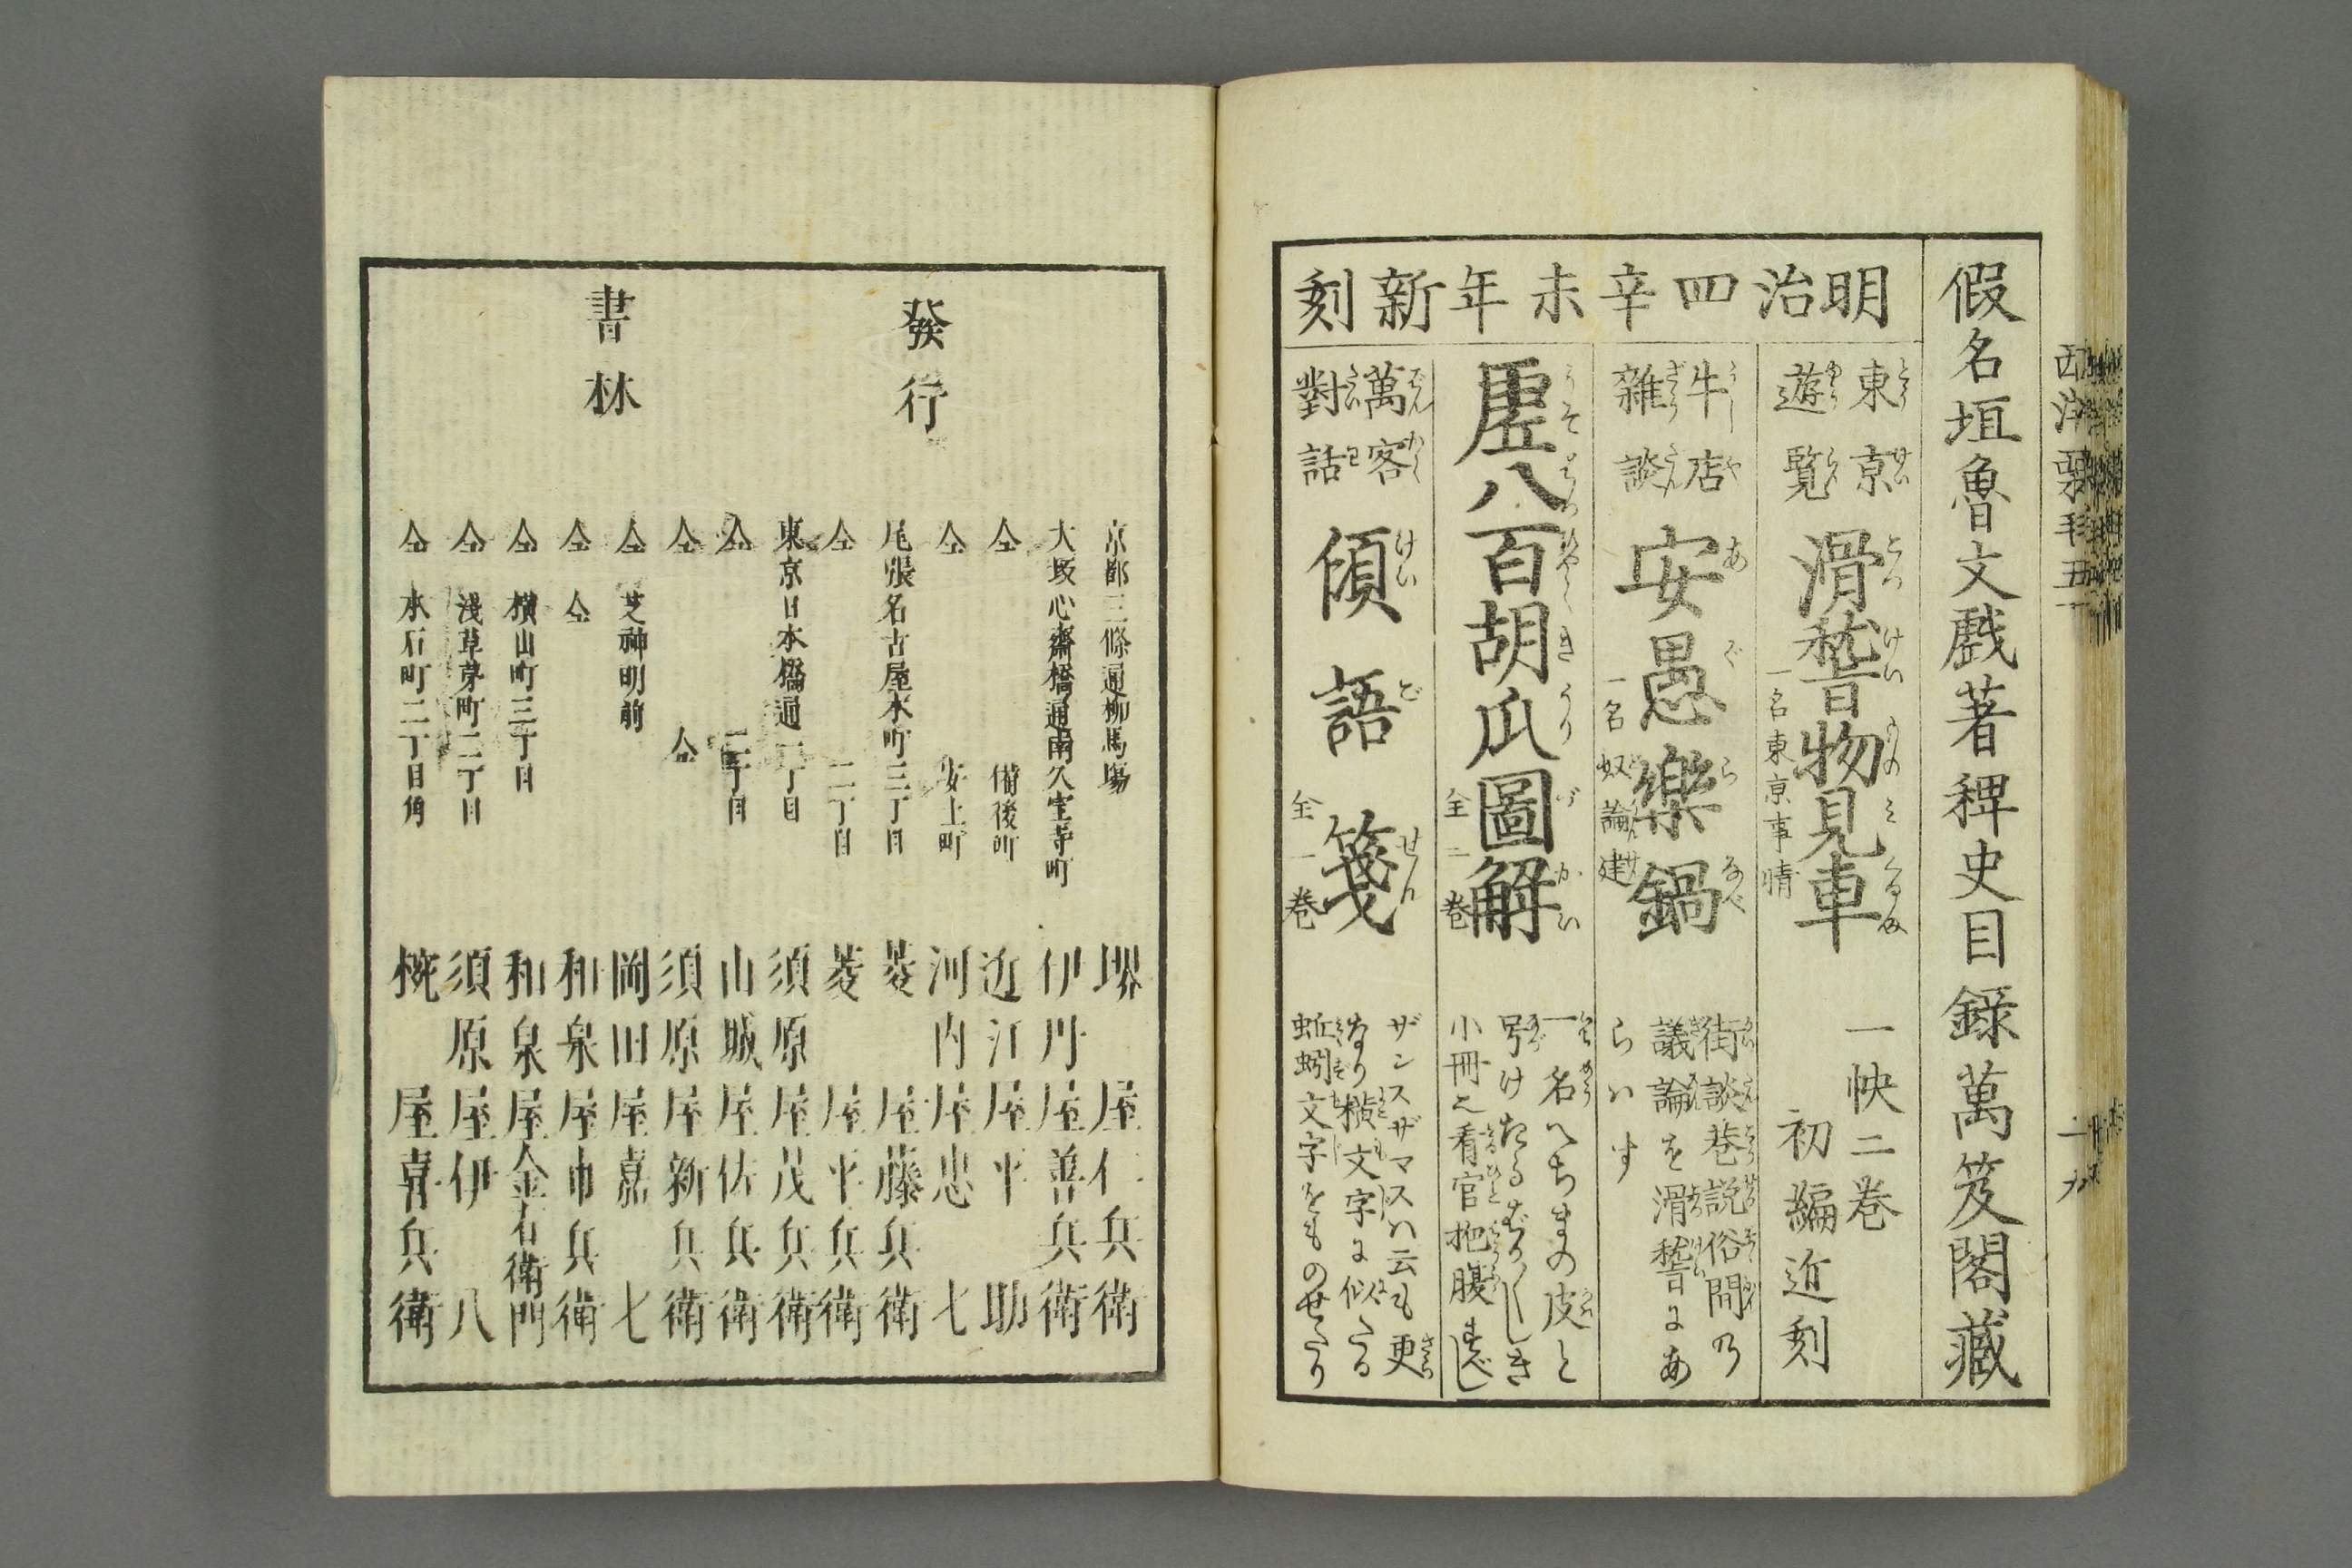 假名垣魯文戯著稗史目錄萬笈閣藏
明治四辛未年新刻
東京遊覧
滑稽物見車
一名東京事情
一帙二巻
初編近刻
牛店雜談
安愚樂鍋
一名奴論建
街談巷説俗間乃
議論を滑稽にあ
らハす
虗八百胡瓜圖解
全二巻
一名へちまの皮と
号けたるばか〳〵しき
小冊之看官抱腹すべし
萬客對話
傾語箋
全一巻
ザンスザマスハ云も更
なり横文字に似たる
蚯蚓文字をものせたり
發行
書林
京都三條通柳馬塲 堺屋仁兵衛
大坂心齋橋通南久宝寺町 伊丹屋善兵衛
仝 備後町 近江屋平助
仝 安土町 河内屋忠七
尾張名古屋本町三丁目 菱屋藤兵衛
仝 二丁目 菱屋平兵衛
東京日本橋通一丁目 須原屋茂兵衛
仝 二丁目 山城屋佐兵衛
仝 仝 須原屋新兵衛
仝 芝神明前 岡田屋嘉七
仝 仝 和泉屋市兵衛
仝 横山町三丁目 和泉屋金右衛門
仝 淺草茅町二丁目 須原屋伊八
仝 本石町二丁目角 椀屋喜兵衛